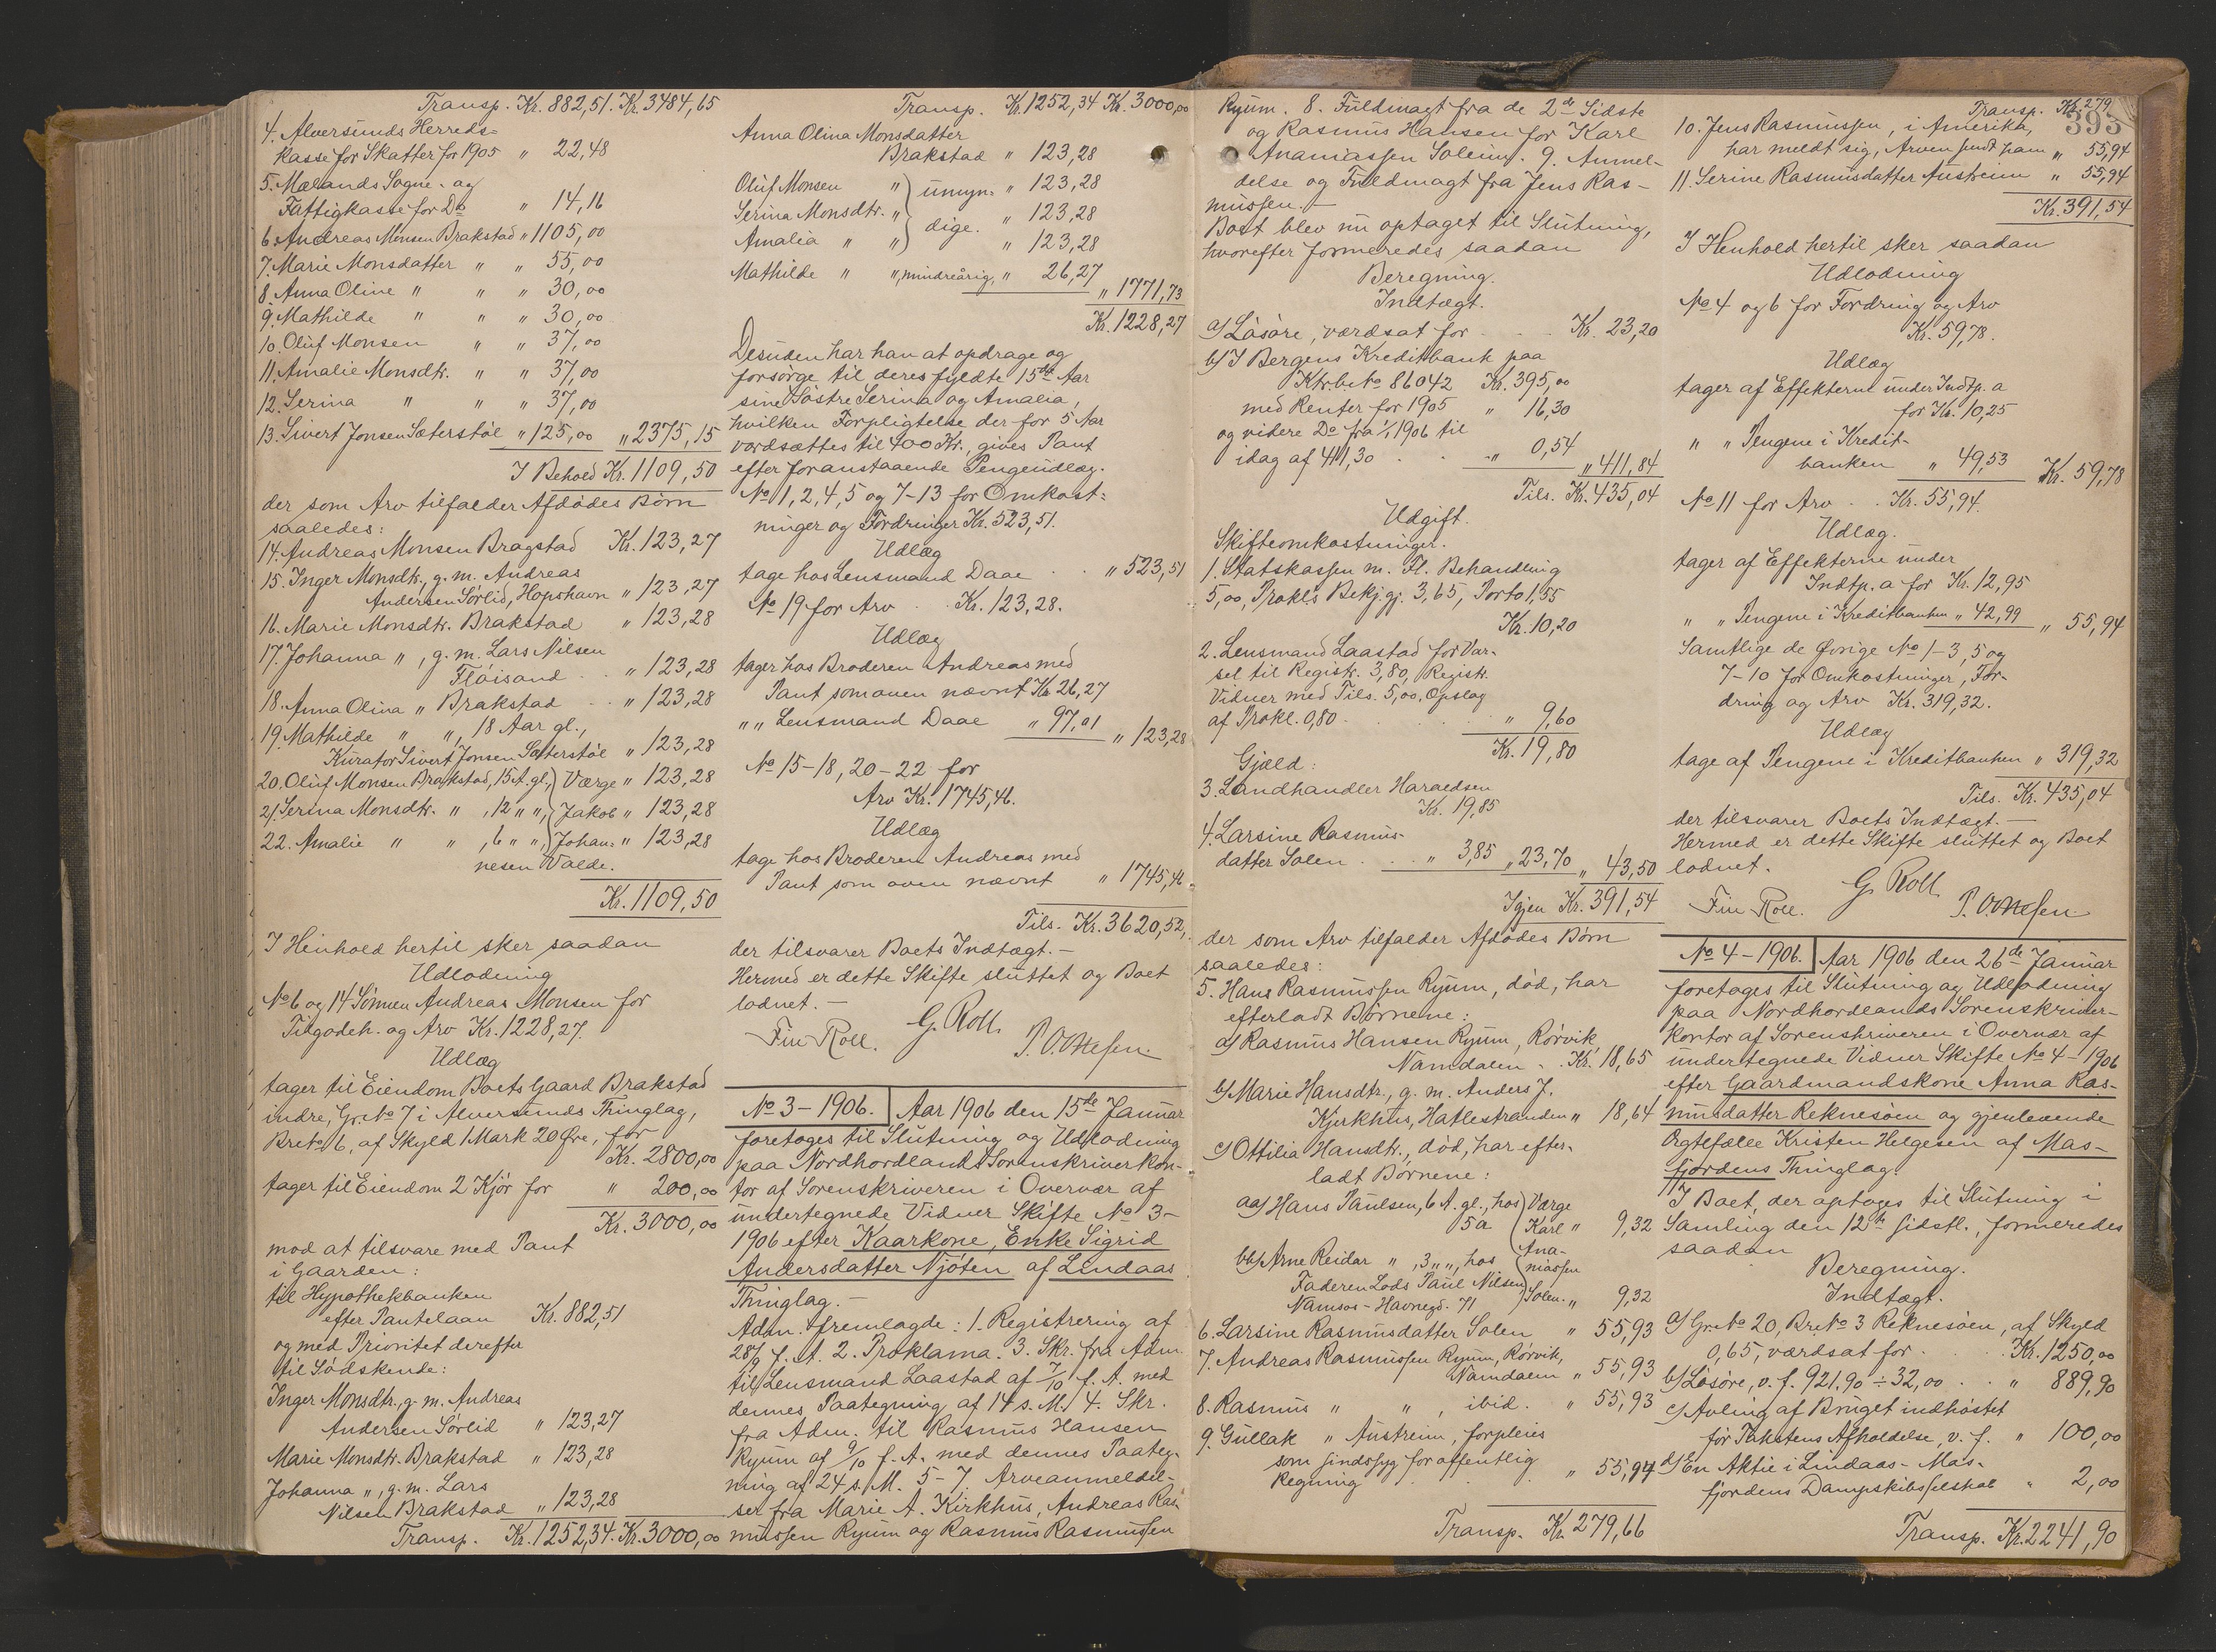 Transp. Kr. 882,51. Kr. 3484,65
4. Alversunds Herreds-
kasse for Skatter for 1905 " 22,48
5. Mælands Sogne- og
Fattigkasse for Do " 14,16
6. Andreas Monsen Brakstad " 1105,00
7. Marie Monsdatter " " 55,00
8. Anna Oline " " " 30,00
9. Mathilde " " " 30,00
10. Oluf Monsen " " 37,00
11. Amalie Monsdtr. " " 37,00
12. Serina " " " 37,00
13. Sivert Jonsen Sæterstøl " 125,00 " 2375,15
I Behold Kr. 1109,50
der som Arv tilfalder Afdødes Børn
saaledes:
14. Andreas Monsen Bragstad Kr. 123,27
15. Inger Monsdtr., g. m. Andreas
Andersen Sørlid, Hopshavn " 123,27
16. Marie Monsdtr. Brakstad " 123,28
17. Johanna ", g. m. Lars Nilsen
Fløisand . . " 123,28
18. Anna Olina " Brakstad . . " 123,28
19. Mathilde " ", 18 Aar gl.,
Kurator Sivert Jonsen Sæterstøl " 123,28
20. Oluf Monsen Brakstad, 15 A. gl., Værge " 123,28
21. Serina Monsdtr. " , 12 " ", Jakob " 123,28
22. Amalie " " , 6 " ", Johan- " 123,28
nesen Valde.
Kr. 1109,50
I Henhold hertil sker saadan
Udlodning
No 6 og 14 Sønnen Andreas Monsen for
Tilgodeh. og Arv Kr. 1228,27.
Udlæg
tager til Eiendom Boets Gaard Brakstad
indre, Gr. No 7 i Alversunds Thinglag,
Br. No 6, af Skyld 1 Mark 20 Øre, for
Kr. 2800,00
tager til Eiendom 2 Kjør for " 200,00
Kr. 3000,00
mod at tilsvare med Pant
i Gaarden:
til Hypothekbanken
efter Pantelaan Kr. 882,51
og med Prioritet derefter
til Sødskende:
Inger Monsdtr., g. m. Andreas
Andersen Sørlid " 123,27
Marie Monsdtr. Brakstad " 123,28
Johanna ", g. m. Lars
Nilsen Brakstad " 123,28
Transp. Kr. 1252,34. Kr. 3000,00
Transp. Kr. 1252,34 Kr. 3000,00
Anna Olina Monsdatter
Brakstad " 123,28
Oluf Monsen " } umyn- " 123,28
Serina Monsdtr. " } dige. " 123,28
Amalia " " } " 123,28
Mathilde " ", mindreårig, " 26,27
" 1771,73
Kr. 1228,27
Desuden har han at opdrage og
forsørge til deres fyldte 15de Aar
sine Søstre Serina og Amalia,
hvilken Forpligtelse der for 5 Aar
værdsættes til 400 Kr., gives Pant
efter foranstaaende Pengeudlæg.
No 1, 2, 4, 5 og 7-13 for Omkost-
ninger og Fordringer Kr. 523,51.
Udlæg
tage hos Lensmand Daae . . " 523,51
No 19 for Arv . . Kr. 123,28.
Udlæg
tager hos Broderen Andreas med
Pant som oven nævnt Kr. 26,27
" " Lensmand Daae " 97,01 " 123,28
No 15-18, 20-22 for
Arv Kr. 1745,46.
Udlæg
tage hos Broderen Andreas med
Pant som oven nævnt " 1745,46
Tils. Kr. 3620,52,
der tilsvarer Boets Indtægt. -
Hermed er dette Skifte sluttet og Boet
lodnet. -
G. Roll.
Fin Roll.
No 3 - 1906. Aar 1906 den 15de Januar
foretoges til Slutning og Udlodning
paa Nordhordlands Sorenskriverkon-
tor af Sorenskriveren i Overvær af
undertegnede Vidner Skifte No 3-
1906 efter Kaarkone, Enke Sigrid
Andersdatter Njøten af Lindaas
Thinglag. -
Adm. fremlagde: 1. Registrering af
28/9 f. A. 2. Proklama. 3. Skr. fra Adm.
til Lensmand Laastad af 7/10 f. A. med
dennes Paategning af 14 s. M. 4. Skr.
fra Adm. til Rasmus Hansen
Ryum af 9/10 f. A. med dennes Paateg-
ning af 24 s. M. 5-7. Arveanmeldel-
ser fra Marie A. Kirkhus, Andreas Ras-
mussen Ryum og Rasmus Rasmussen
Ryum. 8. Fuldmagt fra de 2de Sidste
og Rasmus Hansen for Karl
Ananiassen Solem. 9. Anmel-
delse og Fuldmagt fra Jens Ras-
mussen. -
Boet blev nu optaget til Slutning,
hvorefter formeredes saadan
Beregning.
Indtægt.
a) Løsøre, værdsat for . . . Kr. 23,20
b) I Bergens Kreditbank paa
Ktrb. No 86042 Kr. 395,00
med Renter for 1905 " 16,30
og videre Do fra 1/1 1906 til
idag af 411,30 . . " 0,54
" 411,84
Tils. Kr. 435,04
Udgift.
Skifteomkostninger.
1. Statskassen m. Fl. Behandling
5,00, Prokls Bekj.gj. 3,65, Porto 1,55
Kr. 10,20
2. Lensmand Laastad for Var-
sel til Registr. 3,80, Registr.
Vidner med Tils. 5,00, Opslag
af Prokl. 0,80 . . . . " 9,60
Kr. 19,80
Gjæld:
3. Landhandler Haraldsen
Kr. 19,85
4. Larsine Rasmus-
datter Solen . . . " 3,85 " 23,70 " 43,50
Igjen Kr. 391,54
der som Arv tilfalder Afdødes Børn
saaledes:
5. Hans Rasmussen Ryum, død, har
efterladt Børnene:
a) Rasmus Hansen Ryum, Rørvik,
Namdalen . . Kr. 18,65
b) Marie Hansdtr., g. m. Anders J.
Kjirkhus, Hatlestranden " 18,64
c) Ottilia Hansdtr., død, har efter-
ladt Børnene:
aa) Hans Paulsen, 6 A. gl., hos Værge
5a Karl " 9,32
Ana-
bb) Arne Reidar " , 3 " ", hos niassen
Faderen Lods Paul Nilsen, Solen. "
Namsos - Havnegd. 71 9,32
6. Larsine Rasmusdatter Solen " 55,93
7. Andreas Rasmussen Ryum, Rørvik,
Namdalen " 55,93
8. Rasmus " " , ibid. " 55,93
9. Gullak " Austreim, forpleies
som sindssyg for offentlig
Regning . . . " 55,94
Transp. Kr. 279,66
395
Transp. Kr. 279
10. Jens Rasmussen, i Amerika,
har meldt sig, Arven sendt ham " 55,94
11. Serine Rasmusdatter Austreim " 55,94
Kr. 391,54
I Henhold hertil sker saadan
Udlodning
No 4 og 6 for Fordring og Arv
Kr. 59,78.
Udlæg
tager af Effekterne under Indtp. a
for Kr. 10,25
" " Pengene i Kredit-
banken " 49,53 Kr. 59,78
No 11 for Arv . . Kr. 55,94.
Udlæg.
tager af Effekterne under
Indtp. a for Kr. 12,95
" " Pengene i Kreditbanken " 42,99 " 55,94
Samtlige de Øvrige No 1-3, 5 og
7-10 for Omkostninger, For-
dring og Arv Kr. 319,32.
Udlæg
tage af Pengene i Kreditbanken " 319,32
Tils. Kr. 435,04
der tilsvarer Boets Indtægt. -
Hermed er dette Skifte sluttet og Boet
lodnet.
G. Roll
Fin Roll.
No 4 - 1906. Aar 1906 den 26de Januar
foretoges til Slutning og Udlodning
paa Nordhordlands Sorenskriver-
kontor af Sorenskriveren i Overvær af
undertegnede Vidner Skifte No 4 - 1906
efter Gaardmandskone Anna Ras-
musdatter Reknesøen og gjenlevende
Ægtefælle Kristen Helgesen af Mas-
fjordens Thinglag.
I Boet, der optoges til Slutning i
Samling den 12te sidstl., formeredes
saadan
Beregning.
Indtægt.
a) Gr. No 20, Br. No 3 Reknesøen, af Skyld
0,65, værdsat for . . . Kr. 1250,00
b) Løsøre, v. f. 921,90 ÷ 32,00 . . " 889,90
c) Avling af Bruget indhøstet
før Takstens Afholdelse, v. f. " 100,00
d) En Aktie i Lindaas-Mas-
fjordens Dampskibsselskab " 2,00
Transp. Kr. 2241,90